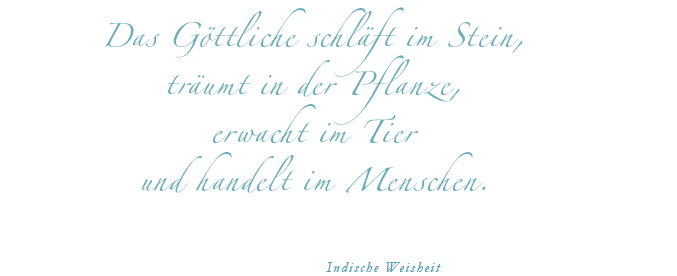 Das Göttliche schläft im Stein,
träumt in der Pflanze,
erwacht im Tier
und handelt im Menschen.
Indische Weisheit